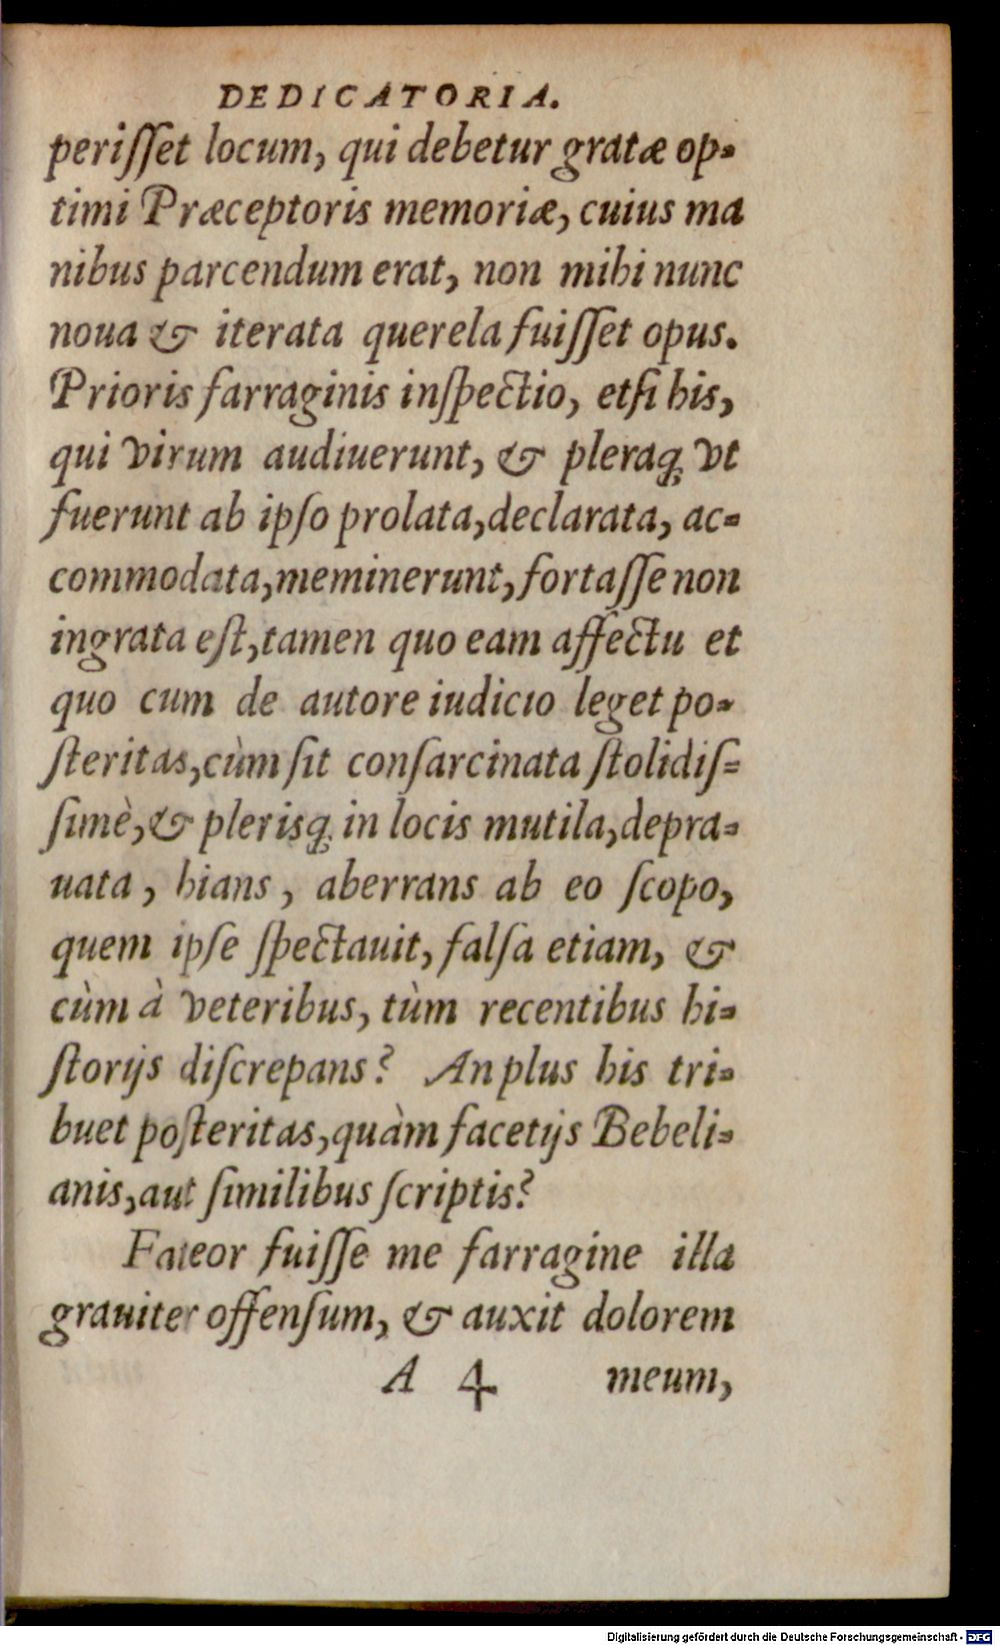 DEDICATORIA.
periſſet locum, qui debetur gratæ op-
timi Præceptoris memoriæ, cuius ma
nibus parcendum erat, non mihi nunc
noua & iterata querela fuiſſet opus.
Prioris farraginis inſpectio, etſi his,
qui virum audiuerunt, & pleraq; vt
fuerunt ab ipſo prolata, declarata, ac-
commodata, meminerunt, fortaſſe non
ingrata eſt, tamen quo eam affectu et
quo cum de autore iudicio leget po-
ſteritas, cùm ſit conſarcinata ſtolidiſ-
ſimè, & plerisq; in locis mutila, depra-
uata, hians, aberrans ab eo ſcopo,
quem ipſe ſpectauit, falſa etiam, &
cùm à veteribus, tùm recentibus hi-
ſtorijs diſcrepans? An plus his tri-
buet poſteritas, quàm facetijs Bebeli-
anis, aut ſimilibus ſcriptis?
Fateor fuiſſe me farragine illa
grauiter offenſum, & auxit dolorem
A 4 meum,
Digitalisierung gefördert durch die Deutsche Forschungsgemeinschaft - DFG